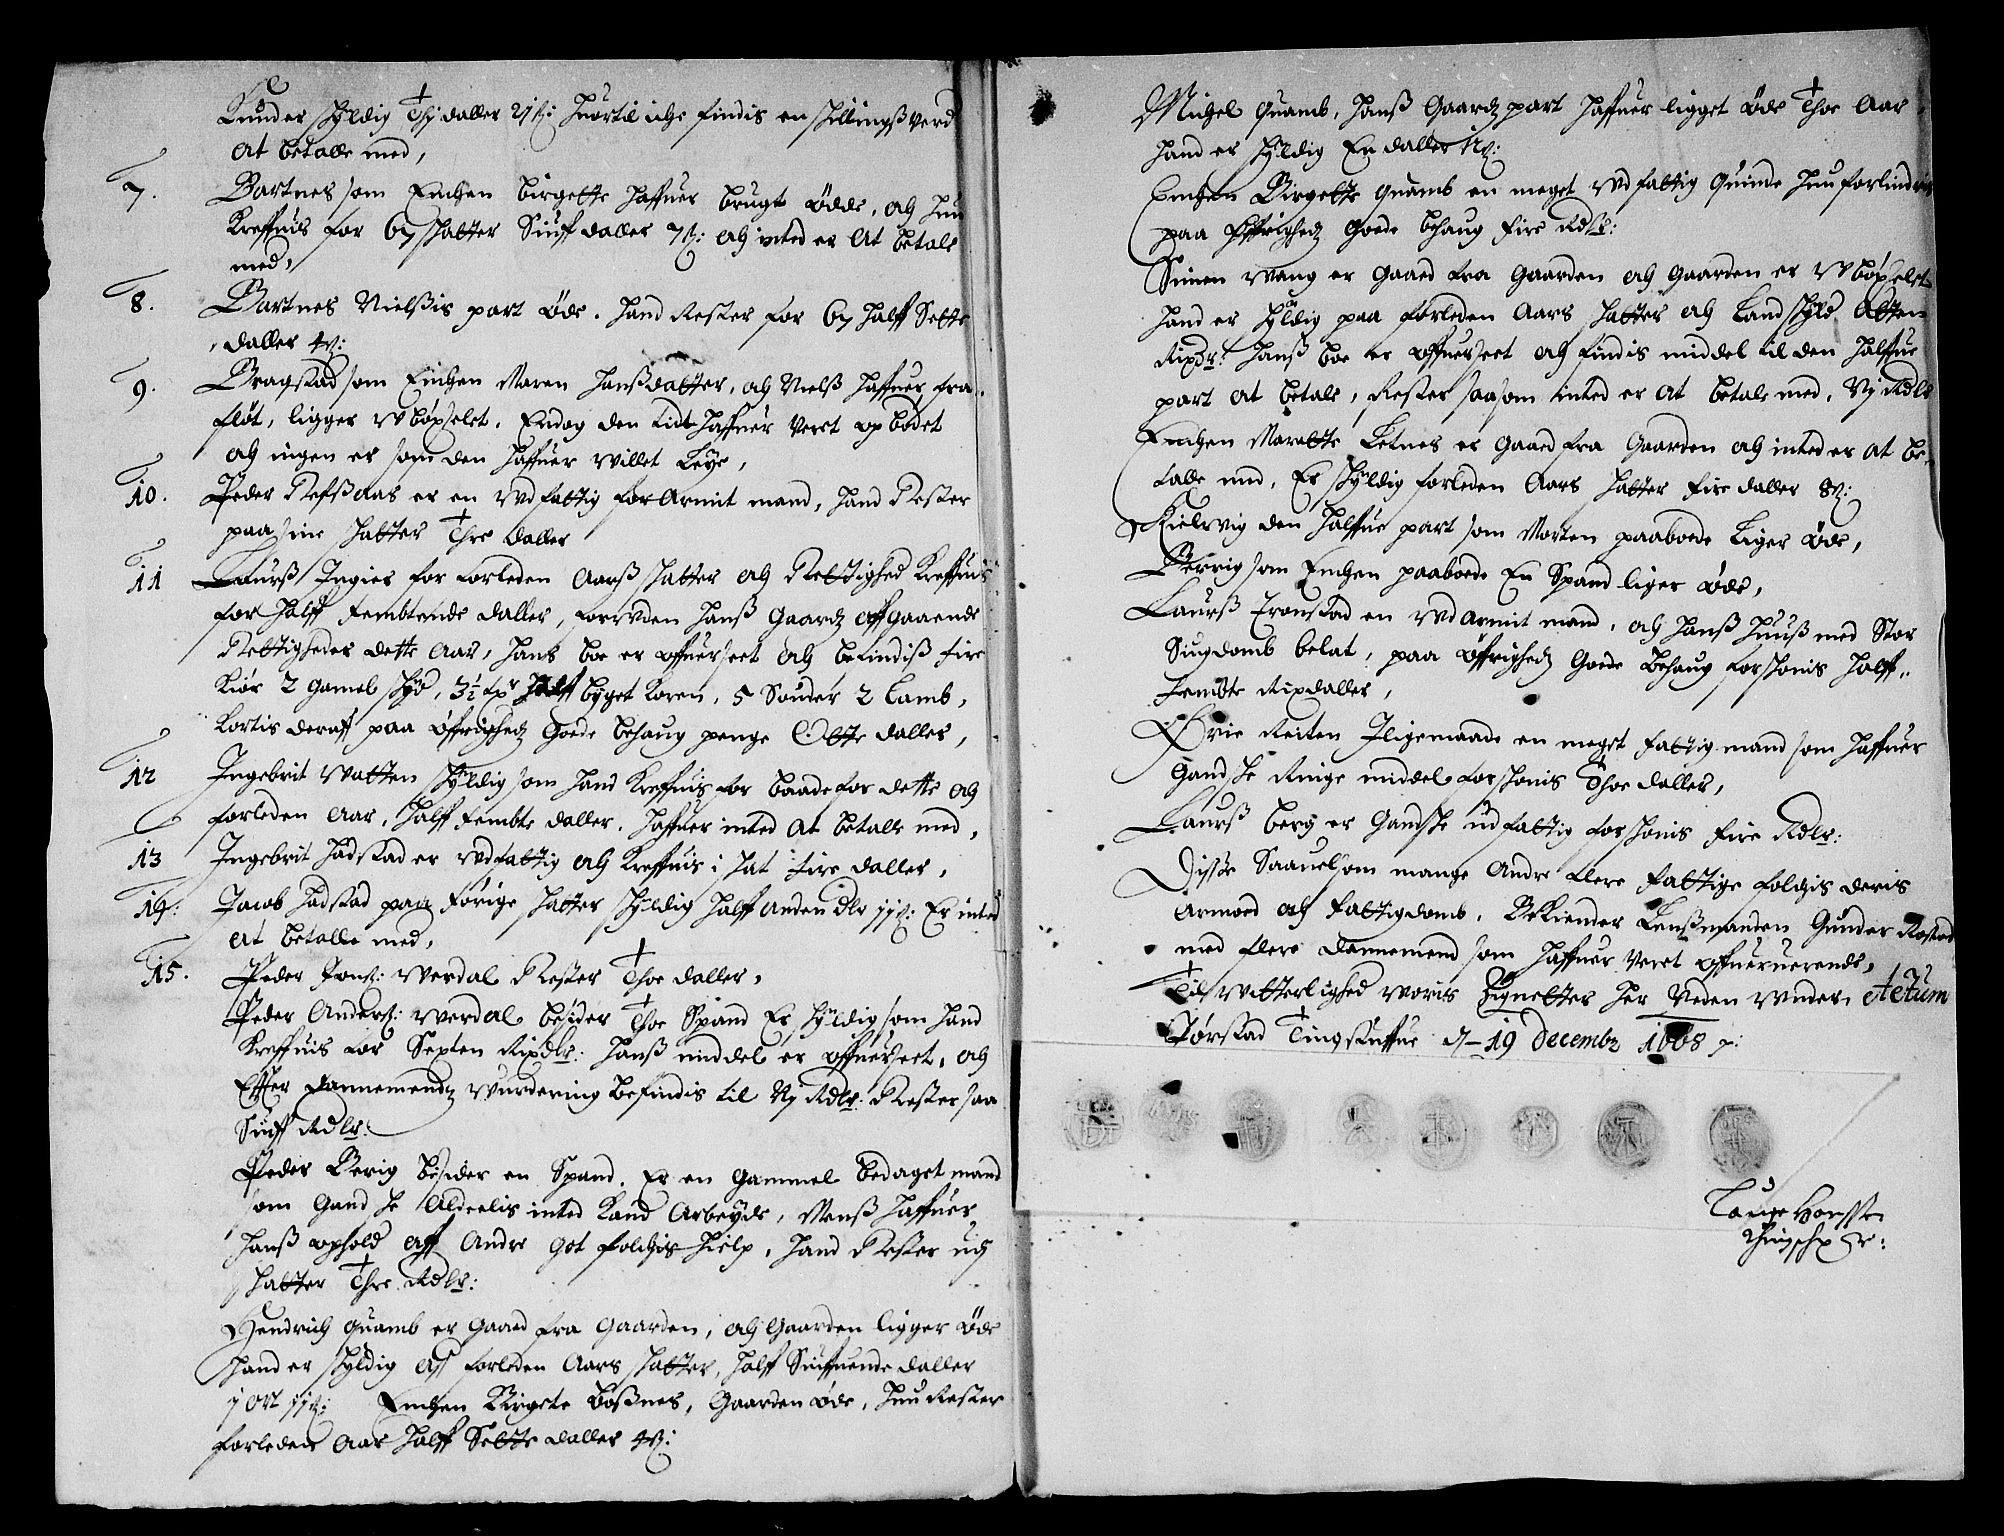 Kunder schyldig Thj daller 21 ß: huortil iche findis en schillingß verd
at betalle med,
7. Bartnes som Enchen Birgette haffuer brugt ødde, och hun
kreffuis for 67 schatter Siuff daller 7 ß: och inted er at betale
med,
8. Bartnes Nielßis part øde. hand Rester for 67 halff Sette
daller 4 ß:
9. Bragstad som Enchen Maren Hanßdatter, och Nielß haffuer fra-
fløt, ligger wbøxelet. Endog den tidt haffuer veret op bødet
och ingen er som den haffuer willet leye,
10. Peder Refßaas er en wdfattig forarmit mand, hand Rester
paa sine schatter Thre daller
11 Laurß Ingies for forleden Aarß schatter och Rettighed kreffuis
for halff Fembtende daller, foruden hanß Gaardz affgaaende
Rettigheder dette Aar, hans boe er offuerseet och befindiß fire
kiør 2 gamel schyd, 3½ byget koren, 5 Souder 2 Lamb,
kortis deraff paa øfrighedz Goede behaug penge Otte daller,
12 Ingebrit Watten schyldig som hand kreffuis for baade for dette och
forleden Aar, halff fembte daller. haffuer inted at betalle med,
13 Ingebrit Hadstad er wdfattig och kreffuis i schat fire daller,
14. Jacob Hadstad paa førige schatter schyldig halff anden dlr 11 ß: Er inted
at betalle med,
15. Peder Jonß: werdal Rester Thoe daller,
Peder Anderß: werdal besider Thoe Spand Er schyldig som hand
kreffuis for Septen Rixdlr: hanß middel er offuerseet, och
Effter dannemendz wurdering befindis til Xj Rdlr: Rester saa
Siuff Rdlr:
Peder Berig besider en Spand. Er en gammel bedaget mand
som gandske Aldeelis inted kand Arbeyde, Menß haffuer
hanß ophold aff Andre got folchis hielp, hand Rester udj
schatter Thre Rdlr:
Hendrich Quamb er gaaed fra gaarden, och gaarden ligger øde
hand er schyldig aff forleden Aars schatter, halff Siuffuende daller
j ort 11 ß: Enchen Birgete Boßnes, Gaarden øde, hun Rester
forleden Aar halff Sette daller 4 ß:
Michel Quamb, hanß gaardz part haffuer ligget øde Thoe Aar
hand er schyldig En daller
Enchen Birgette Quamb en meget wdfattig Quinde hun forlindris
paa Øffrighedz goede behaug fire Rdlr:
Simen Wang er gaaed fra gaarden och gaarden er wbøxelet
hand er schyldig paa forleden Aars schatter och Landschyld Atten
Rixdr: hanß boe er offuerseet och findis middel til den halffue
part at betale, Rester saa som inted er at betale med, Nj Rdlr
Enchen Marette Letnes er gaaed fra gaarden och inted er at be-
talle med, Er schyldig forleden Aars schatter fire daller 8 ß:
Kielwig den halffue part som Morten paaboede liger øde,
Berrig som Enchen paaboede En Spand liger øde,
Laurß Tronstad en wdarmit mand, och hanß huuß med Stor
Siugdomb belat, paa øffrighedz Goede behaug forschonis halff
fembte Rixdaller,
Ørie Reiten Iligemaade en meget fattig mand som haffuer
gandske Ringe middel forschonis Thoe daller,
Laurß Berg er gandske udfattig forschonis fire Rdlr:
Disse Saauelsom mange Andre flere fattige folchis deris
Armoed och fattigdomb, Bekiender Lenßmanden Gunder Rostad
med flere dannemend som haffuer veret offueruerende,
Til witterlighed woris Zignetter her Neden wnder, Actum
Størstad Tingstuffue d 19 Decembr 1668